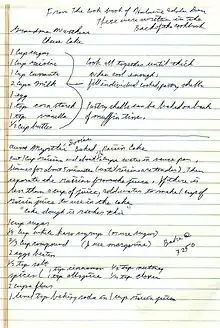 From the cook book of
These were written in the
Back of the cookbook
Grandma
Chess Cake
1 cup sugar
1 cup raisins
1 cup currants
2 cups milk
1 egg
1 tbsp cornstarch
1 tsp vanilla
1/2 cup butter
Cook all together until thick
when cool enough
fill individual cooked pastry shells
Pastry shells can be baked on back
of muffin tins.
Aunt Myrtle's Boiled Raisin Cake
Put 1 cup raisins and about 2 cups water in sauce pan
simmer for about 5 minutes (until raisins are tender). Then
separate the raisins from the juice. If there is
less than 1 cup of juice, add water to make 1 cup of
raisin juice to use in the cake
"Cake dough is rather thin"
1 cup sugar
1/2 cup white karo syrup
2/3 cup compound (I use margarine)
2 eggs beaten
1/2 tsp salt
spices: 1 tsp cinnamon 1/2 tsp nutmeg
1 tsp allspice 1/2 tsp cloves
2 cups flour
1 level tsp baking soda in 1 cup raisin juice
Bake @